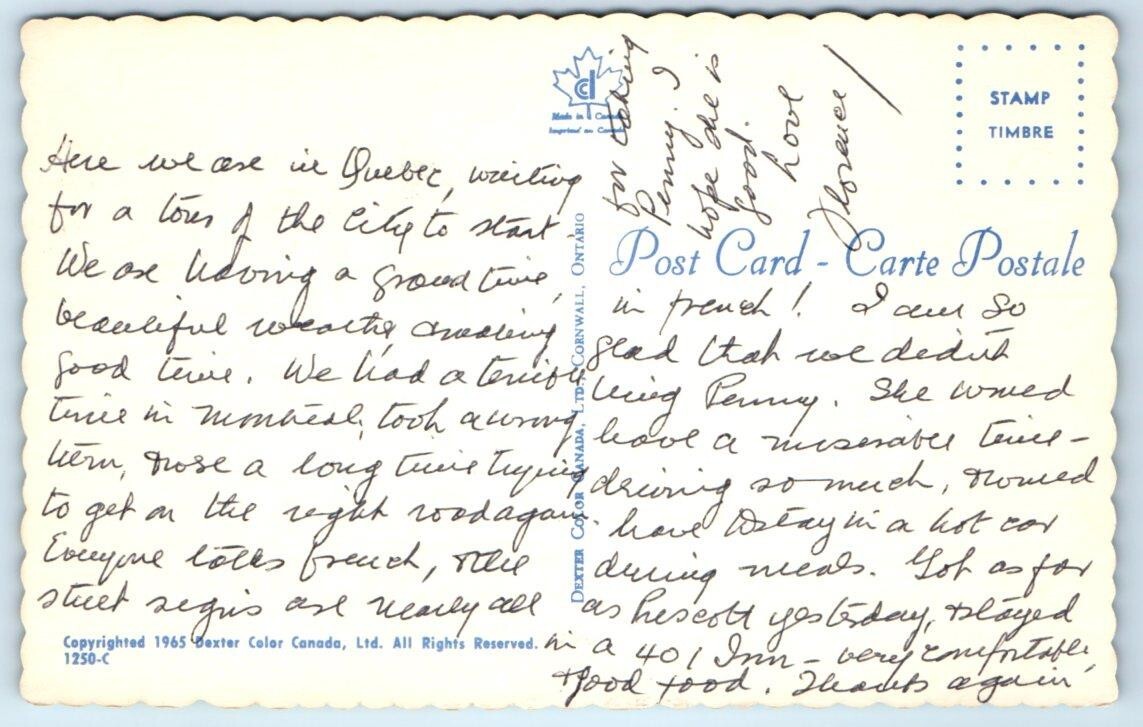 Here we are in Quebec, waiting
for a tour of the City to start
We are having a grand time,
beautiful weather, making
good time. We had a terrible
time in Montreal, took a wrong
turn, & rose a long time trying
to get on the right road again.
Everyone talks french, & the
street signs are nearly all
in french! I am so
glad that we didn't
bring Penny. She would
have a miserable time -
driving so much, & would
have to stay in a hot car
during meals. Got as far
as Prescott yesterday, & stayed
in a 401 Inn - very comfortable,
& good food. Thanks again
for taking
Penny. I
hope she is
good.
Love
Florence
cd
Made in Canada
Imprimé au Canada
STAMP
TIMBRE
Post Card - Carte Postale
DEXTER COLOR CANADA, LTD., CORNWALL, ONTARIO
Copyrighted 1965 Dexter Color Canada, Ltd. All Rights Reserved.
1250-C